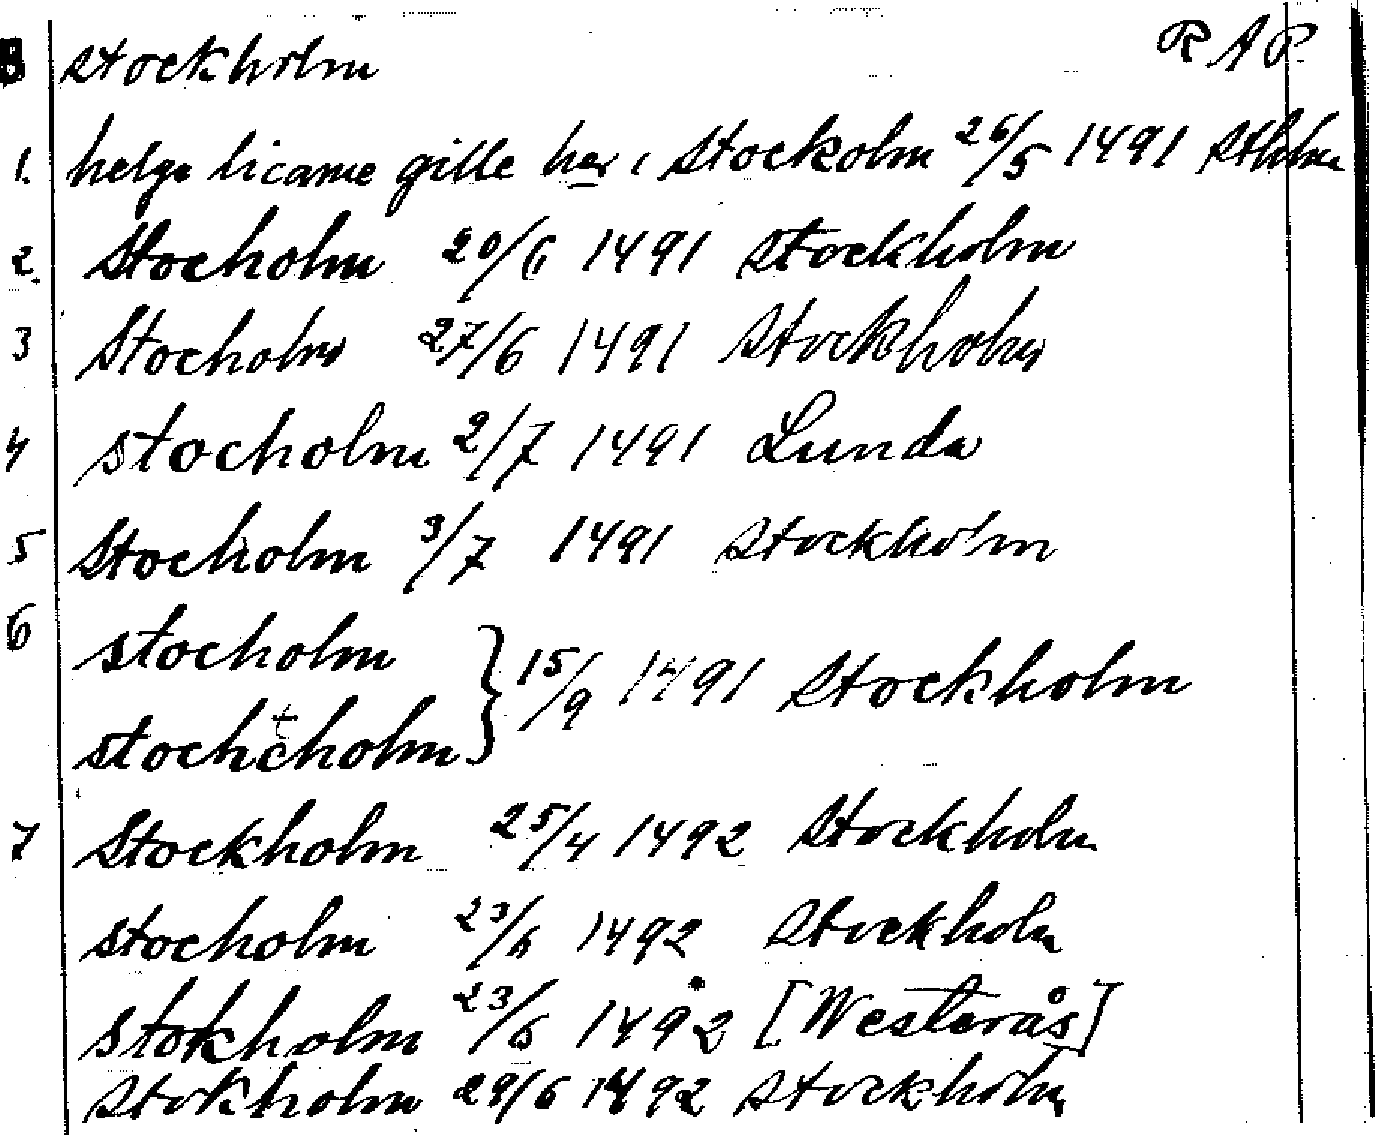 B Stockholm RAP
1. helge licame gille her i Stockolm 26/5 1491 Sthlm
2. Stocholm 20/6 1491 Stockholm
3 Stocholm 27/6 1491 Stockholm
4 Stocholm 2/7 1491 Lunda
5 Stocholm 3/7 1491 Stockholm
6 Stocholm
stochcholm } 15/9 1491 Stockholm
7 Stockholm 25/4 1492 Stockholm
Stocholm 23/6 1492 Stockholm
Stokholm 23/6 1492 [Westerås]
Stokholm 29/6 1492 Stockholm